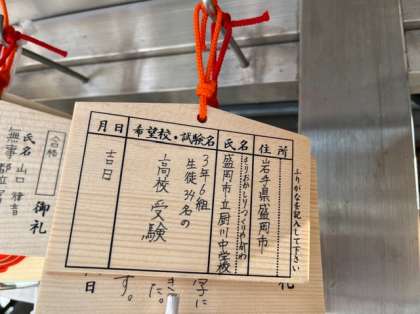 ふりがなを記入して下さい
住所
岩手県盛岡市
氏名
盛岡市立厨川中学校
希望校・試験名
3年6組
生徒34名の
高校受験
月日
吉日
合格
御礼
氏名 山口
無事 都立
札
字に
きた。
す。
日